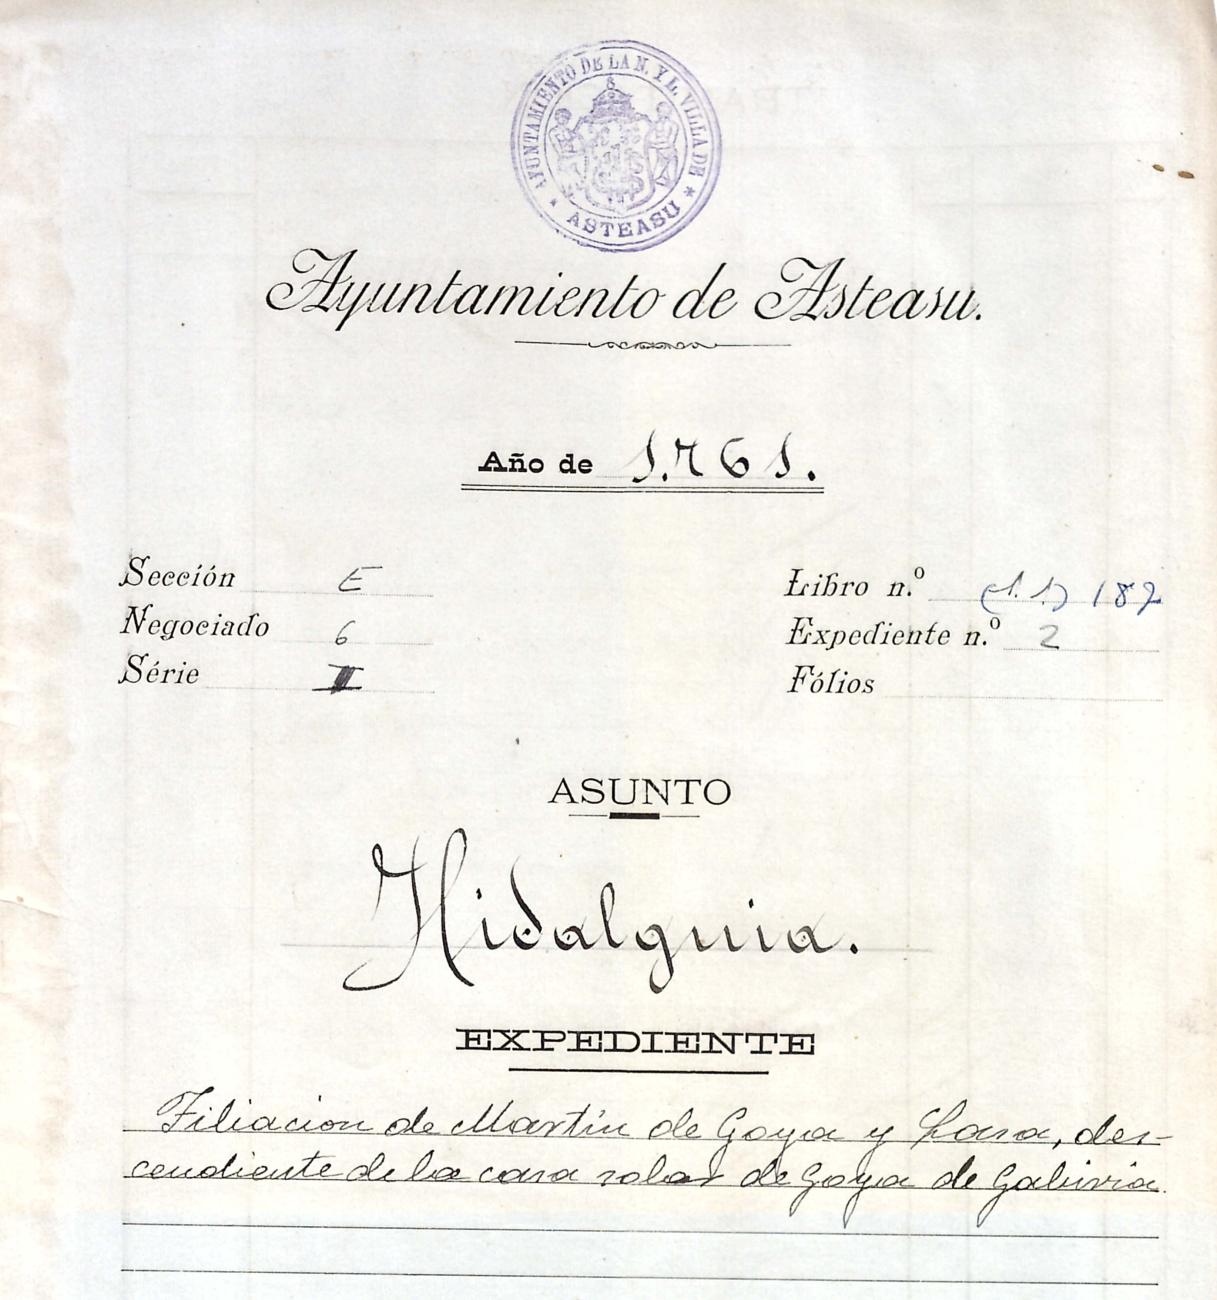 AYUNTAMIENTO DE LA N. Y L. VILLA DE
* ASTEASU *
Ayuntamiento de Asteasu.
Año de 1.761.
Sección E
Libro n.º (1.1) 187
Negociado 6
Expediente n.º 2
Série II
Fólios
ASUNTO
Hidalguia.
EXPEDIENTE
Filiacion de Martin de Goya y Lasa, des-
cendiente de la casa solar de Goya de Gabiria.